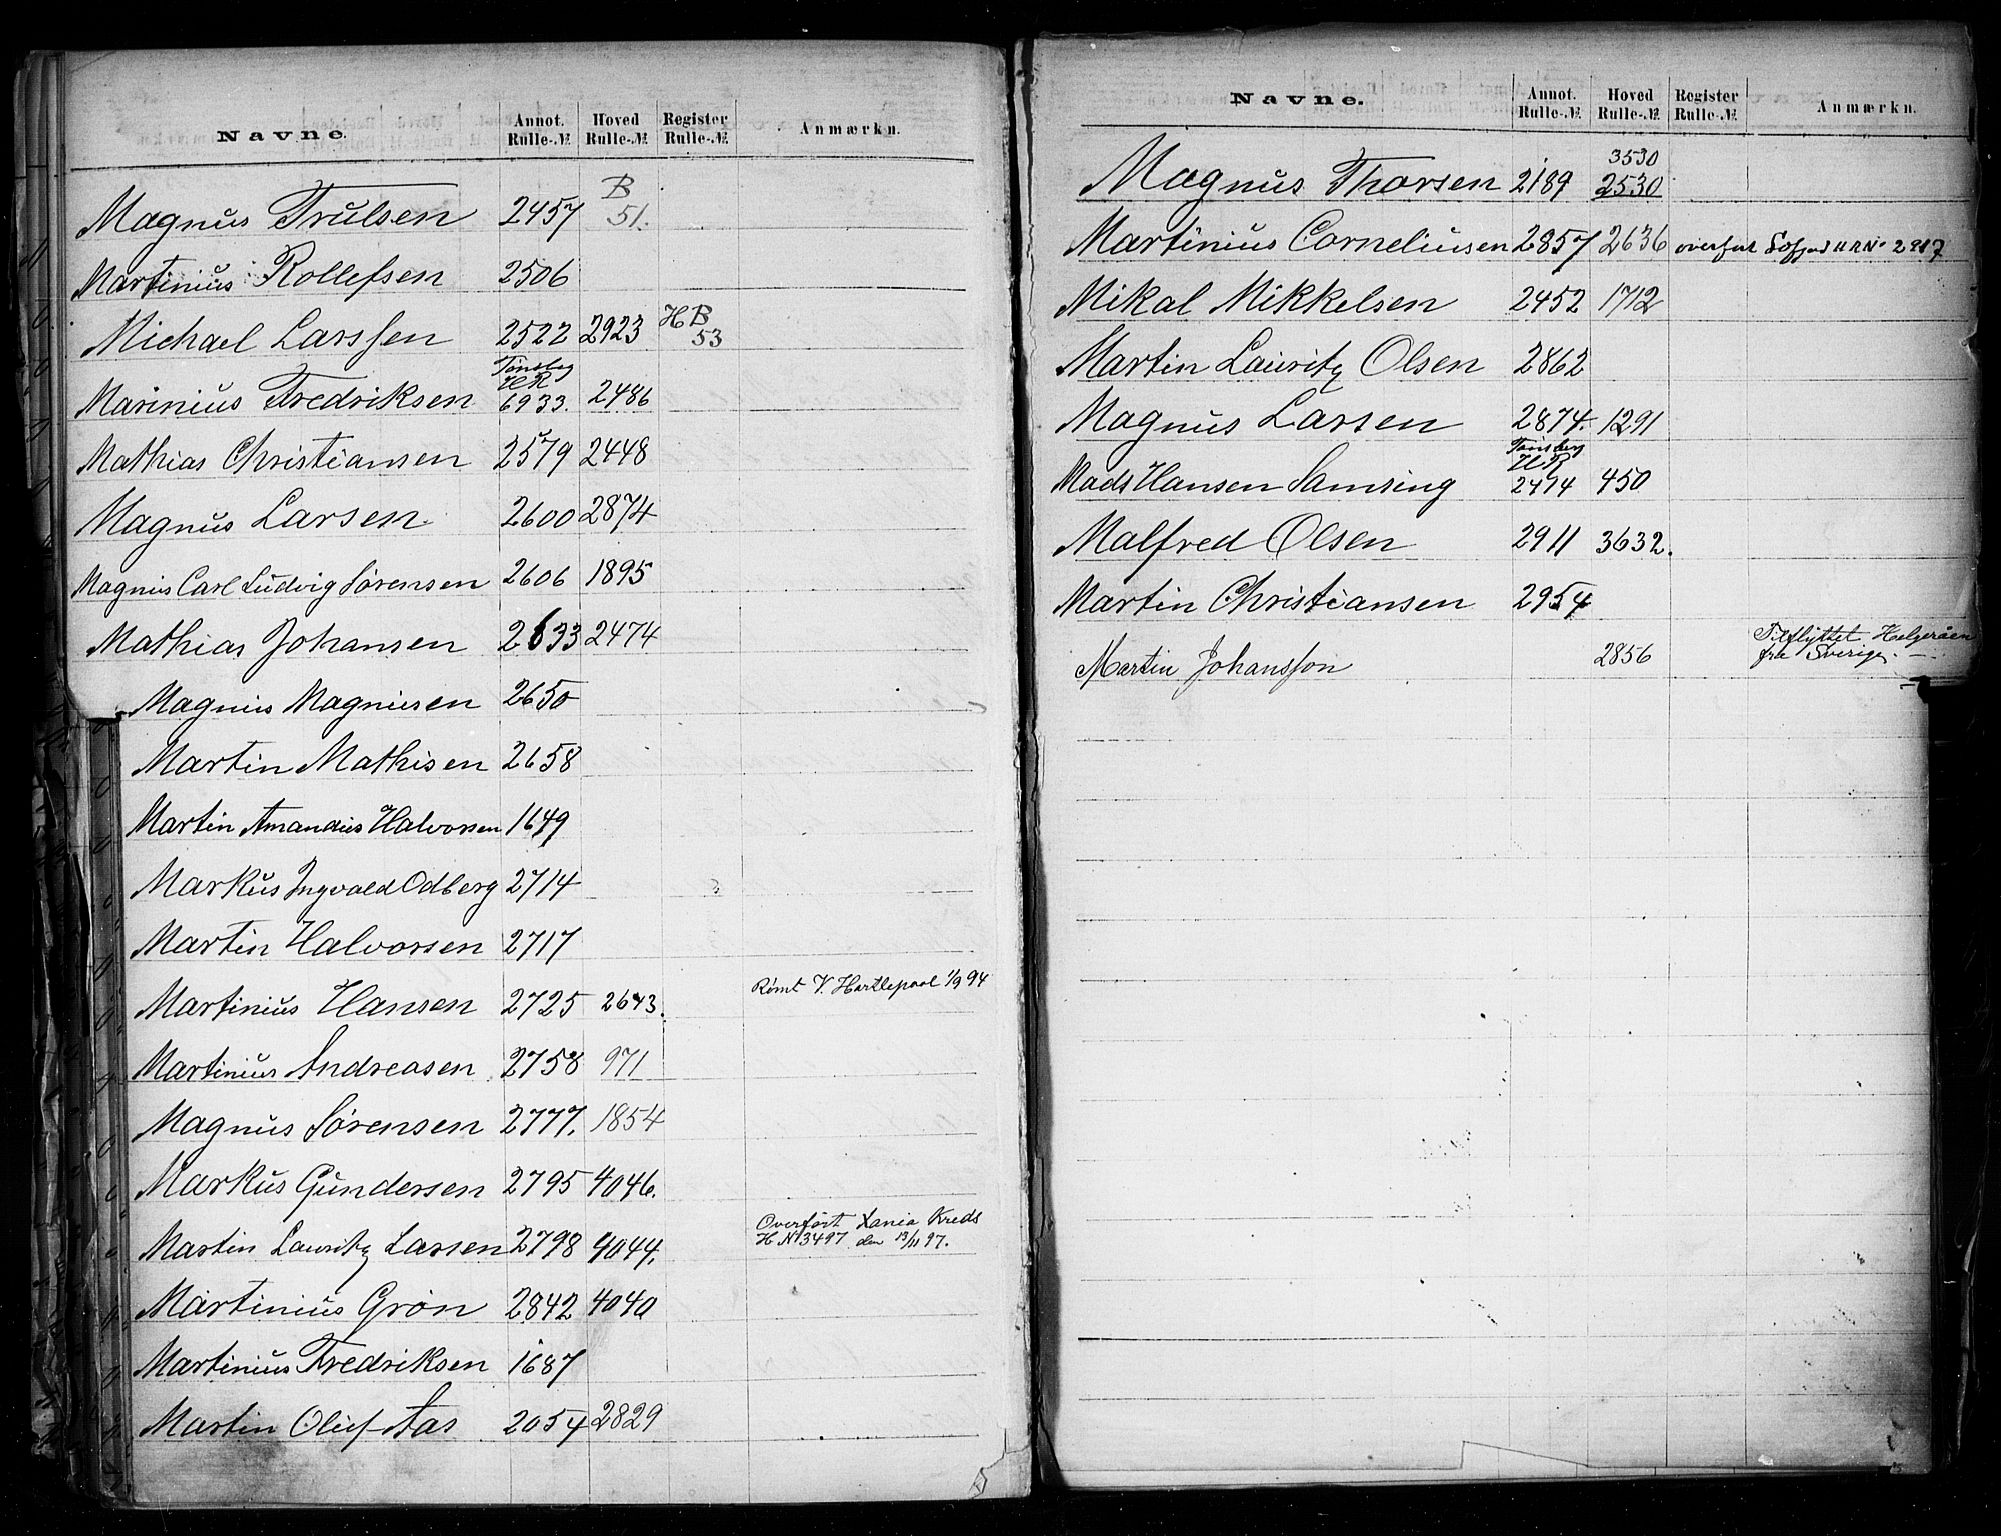 Navne. Annot. Rulle-№ Hoved Rulle-№ Register Rulle-№ Anmærkn.
Magnus Trulsen 2457 B 51.
Martinius Rollefsen 2506
Michael Larssen 2522 2923 HB 53
Marinius Fredriksen Tønsberg HR 6933. 2486
Mathias Christiansen 2579 2448
Magnus Larsen 2600 2874
Magnus Carl Ludvig Sørensen 2606 1895
Mathias Johansen 2633 2474
Magnus Magnusen 2650
Martin Mathisen 2658
Martin Amandius Halvorsen 1649
Markus Ingvald Odberg 2714
Martin Halvorsen 2717
Martinius Hansen 2725 2643. Rømt V. Hartlepool 1/9 94
Martinius Andreasen 2758 971
Magnus Sørensen 2777. 1854
Markus Gundersen 2795 4046.
Martin Lauritz Larsen 2798 4044. Overført Xania Kreds
H N 3497 den 13/11 97.
Martinius Grøn 2842 4040
Martinius Fredriksen 1687
Martin Oluf Aas 2054 2829
Navne. Annot. Rulle-№ Hoved Rulle-№ Register Rulle-№ Anmærkn.
Magnus Thorsen 2189 3530 2530
Martinius Corneliusen 2857 2636 overført 2917
Mikal Mikkelsen 2452 1712
Martin Lauritz Olsen 2862
Magnus Larsen 2874. 1291
Mads Hansen Samsing Tønsberg HR 2474 450
Malfred Olsen 2911 3632.
Martin Christiansen 2954
Martin Johansson 2856 Tilflyttet Helgeråen
fra Sverige.